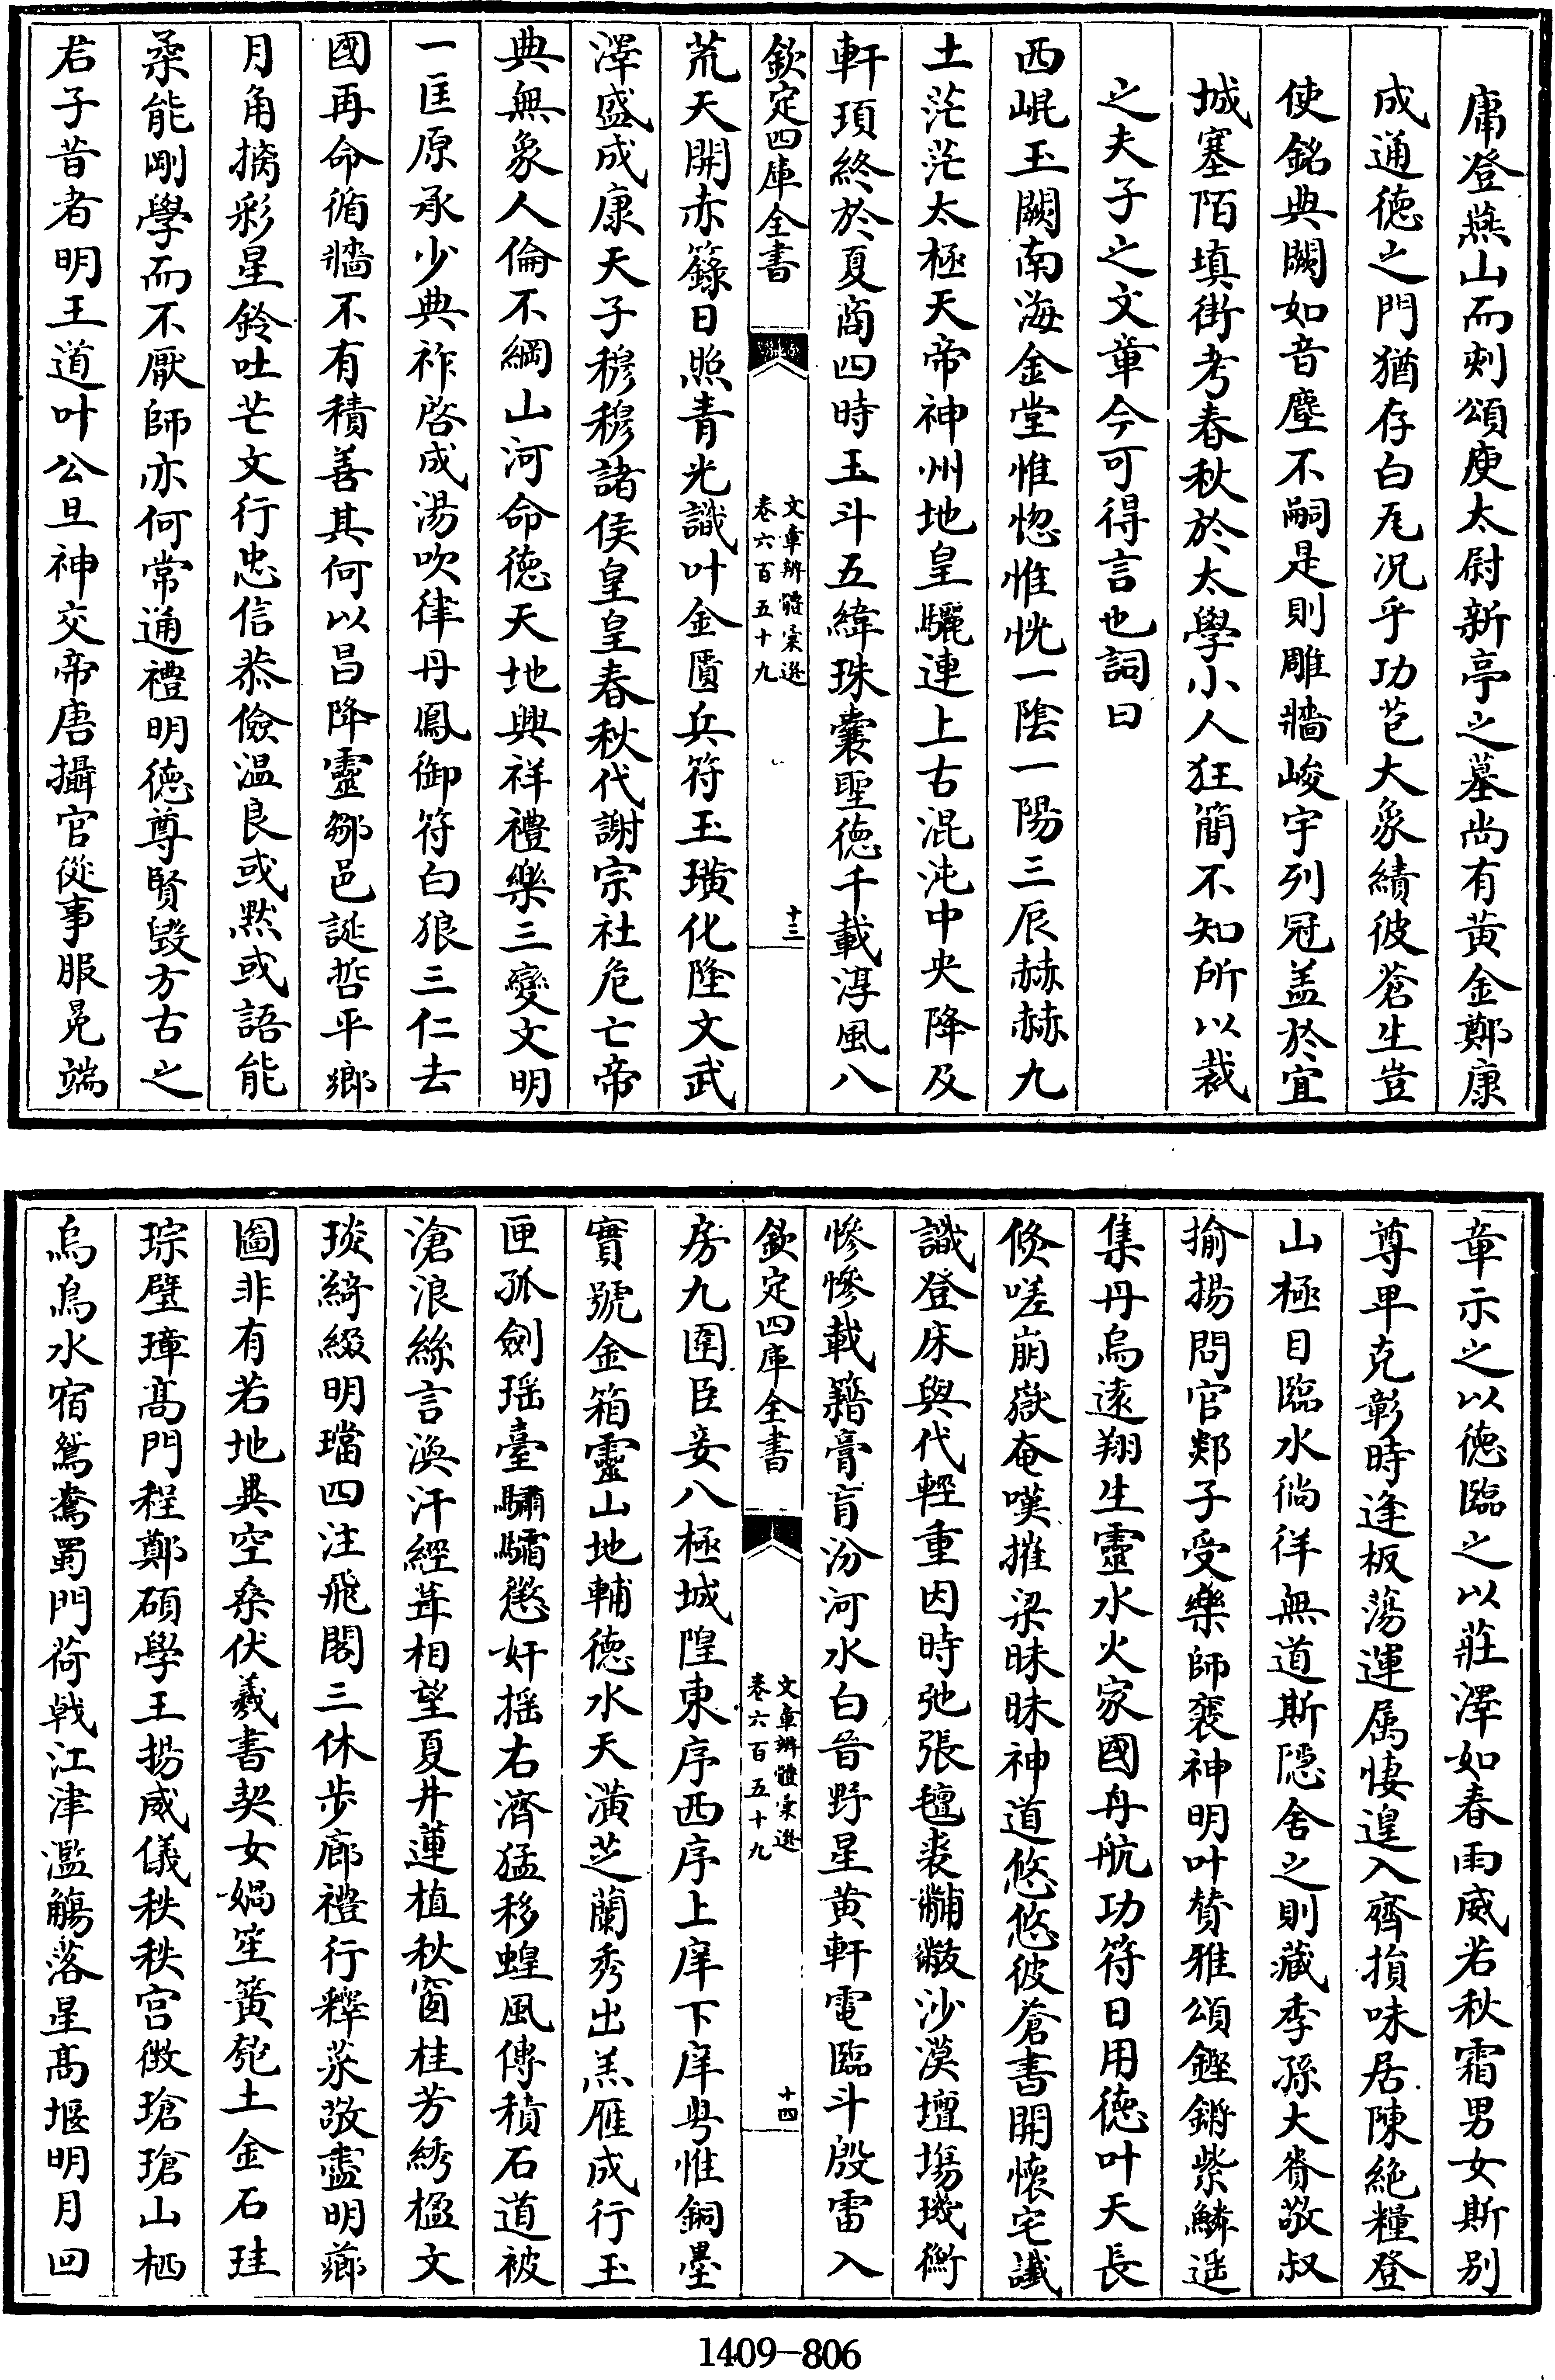 庸登燕山而刻頌庾太尉新亭之墓尚有黄金鄭康
成通徳之門猶存白瓦况乎功芭大象績彼蒼生豈
使銘典闕如音塵不嗣是則雕牆峻宇列冠盖於宜
城塞陌填街考春秋於太學小人狂簡不知所以裁
之夫子之文章今可得言也詞曰
西崐玉闕南海金堂惟惚惟恍一隂一陽三辰赫赫九
土茫茫太極天帝神州地皇驪連上古混沌中央降及
軒頊終於夏商四時玉斗五緯珠囊聖徳千載淳風八
欽定四庫全書
文章辨體彙選
卷六百五十九
十三
荒天開赤籙日照青光識叶金匱兵符玉璜化隆文武
澤盛成康天子穆穆諸侯皇皇春秋代謝宗社危亡帝
典無象人倫不綱山河命徳天地興祥禮樂三變文明
一匡原承少典祚啓成湯吹律丹鳳御符白狼三仁去
國再命循牆不有積善其何以昌降靈鄒邑誕哲平鄉
月角摛彩星鈴吐芒文行忠信恭儉温良或黙或語能
柔能剛學而不厭師亦何常通禮明徳尊賢毁方古之
君子昔者明王道叶公旦神交帝唐攝官從事服冕端
章示之以徳臨之以莊澤如春雨威若秋霜男女斯别
尊卑克彰時逢板蕩運属悽遑入齊損味居陳絶糧登
山極目臨水徜徉無道斯隠舍之則藏季孫大脊敬叔
揄揚問官郯子受樂師襄神明叶賛雅頌鏗鏘紫鱗遥
集丹烏逺翔生靈水火家國舟航功符日用徳叶天長
倐嗟崩嶽奄嘆摧梁昧昧神道悠悠彼蒼書開懐宅讖
識登床與代輕重因時弛張氊裘黼黻沙漠壇塲璣衡
惨惨載籍膏肓汾河水白晉野星黄軒電臨斗殷雷入
欽定四庫全書
文章辨體彙選
卷六百五十九
十四
房九圍臣妾八極城隍東序西序上庠下庠粤惟銅墨
實號金箱靈山地輔徳水天潢芝蘭秀出羔雁成行玉
匣孤劍瑶臺驌驦懲奸揺右濟猛移蝗風傳積石道被
滄浪絲言渙汗經葺相望夏井蓮植秋窗桂芳綉楹文
琰綺綴明璫四注飛閣三休步廊禮行釋菜敬盡明薌
圖非有若地異空桑伏羲書契女媧笙簧匏土金石珪
琮璧璋髙門程鄭碩學王揚威儀秩秩宫徴瑲瑲山栖
烏烏水宿鴛鴦蜀門荷戟江津濫觴落星髙堰明月囘
1409-806